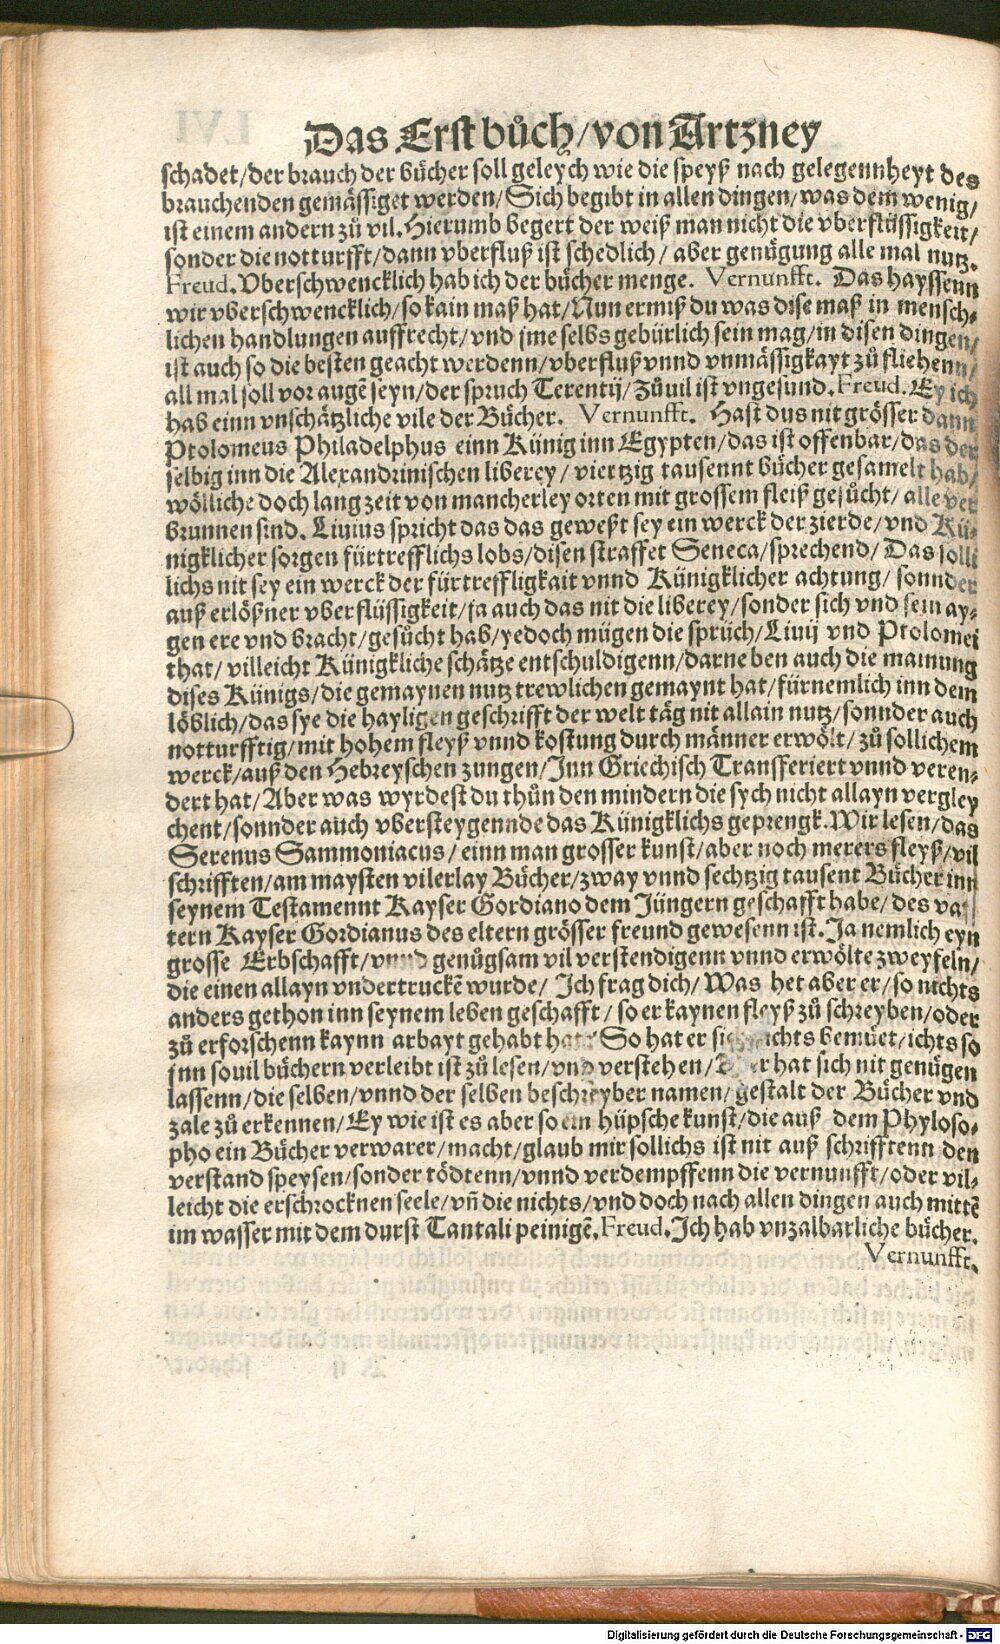 Das Erst bůch/von Artzney
schadet/der brauch der bücher soll geleych wie die speyß nach gelegennheyt des
brauchenden gemässiget werden/Sich begibt in allen dingen/was dem wenig/
ist einem andern zů vil. Hierumb begert der weiß man nicht die vberflüssigkeit/
sonder die notturfft/dann vberfluß ist schedlich/aber genůgung alle mal nutz.
Freud. Vberschwencklich hab ich der bücher menge. Vernunfft. Das hayssenn
wir vberschwencklich/so kain maß hat/Nun ermiß du was dise maß in mensch-
lichen handlungen auffrecht/vnd jme selbs gebürlich sein mag/in disen dingen/
ist auch so die besten geacht werdenn/vberfluß vnnd vnmässigkayt zů fliehenn/
all mal soll vor augē seyn/der spruch Terentij/Zůuil ist vngesund. Freud. Ey ich
hab einn vnschätzliche vile der Bücher. Vernunfft. Hast dus nit grösser dann
Ptolomeus Philadelphus einn Künig inn Egypten/das ist offenbar/das der
selbig inn die Alexandrinischen liberey/viertzig tausennt bücher gesamelt hab/
wölliche doch lang zeit von mancherley orten mit grossem fleiß gesůcht/alle ver
brunnen sind. Liuius spricht das das geweßt sey ein werck der zierde/vnd Kü-
nigklicher sorgen fürtrefflichs lobs/disen straffet Seneca/sprechend/Das solli
lichs nit sey ein werck der fürtreffligkait vnnd Künigklicher achtung/sonnder
auß erlößner vberflüssigkeit/ja auch das nit die liberey/sonder sich vnd sein ay-
gen ere vnd bracht/gesůcht hab/yedoch mügen die sprüch/Liuij vnd Ptolomei
that/villeicht Künigkliche schätze entschuldigenn/darneben auch die mainung
dises Künigs/die gemaynen nutz trewlichen gemaynt hat/fürnemlich inn dem
löblich/das sye die hayligen geschrifft der welt täg nit allain nutz/sonnder auch
notturfftig/mit hohem fleyß vnnd kostung durch männer erwölt/zů sollichem
werck/auß den Hebreyschen zungen/Inn Griechisch Transferiert vnnd veren-
dert hat/Aber was wyrdest du thůn den mindern die sych nicht allayn vergley
chent/sonnder auch vbersteygennde das Künigklichs geprengk. Wir lesen/das
Serenus Sammoniacus/einn man grosser kunst/aber noch merers fleyß/vil
schrifften/am maysten vilerlay Bücher/zway vnnd sechtzig tausent Bücher inn
seynem Testamennt Kayser Gordiano dem Jüngern geschafft habe/des vat
tern Kayser Gordianus des eltern grösser freund gewesenn ist. Ja nemlich eyn
grosse Erbschafft/vnnd genůgsam vil verstendigenn vnnd erwölte zweyfeln/
die einen allayn vndertruckē wurde/Ich frag dich/Was het aber er/so nichts
anders gethon inn seynem leben geschafft/so er kaynen fleyß zů schreyben/oder
zů erforschenn kaynn arbayt gehabt So hat er bemüet/ichts so
jnn souil büchern verleibt ist zů lesen/vnd verstehen/ hat sich nit genügen
lassenn/die selben/vnnd der selben beschreyber namen/gestalt der Bücher vnd
zale zů erkennen/Ey wie ist es aber so ein hüpsche kunst/die auß dem Phyloso-
pho ein Bücher verwarer/macht/glaub mir sollichs ist nit auß schrifftenn den
verstand speysen/sonder tödtenn/vnnd verdempffenn die vernunfft/oder vil-
leicht die erschrocknen seele/vñ die nichts/vnd doch nach allen dingen auch mittē
im wasser mit dem durst Tantali peinigē. Freud. Ich hab vnzalbarliche bücher.
Vernunfft.
Digitalisierung gefördert durch die Deutsche Forschungsgemeinschaft - DFG